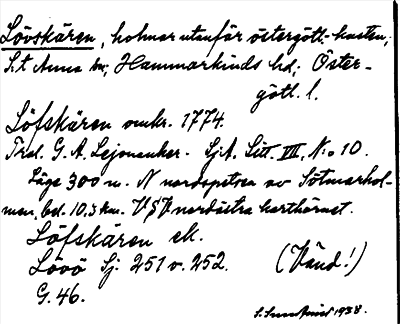 Lövskären, holmar utanför östergötl. kusten,
S:t Anna sn, Hammarkinds hd, Öster-
götl. l.
Löfskären omkr. 1774.
Tral. G. A. Lejonanker. SjA. Litt VII, N:o 10.
Läge 300 m. N nordspetsen av Sötmarhol-
men, bel. 10,5 km. VSV nordöstra karthörnet.
Löfskären ek.
Lövö Sj. 251 v. 252.
(Vänd!)
G. 46.
1938.